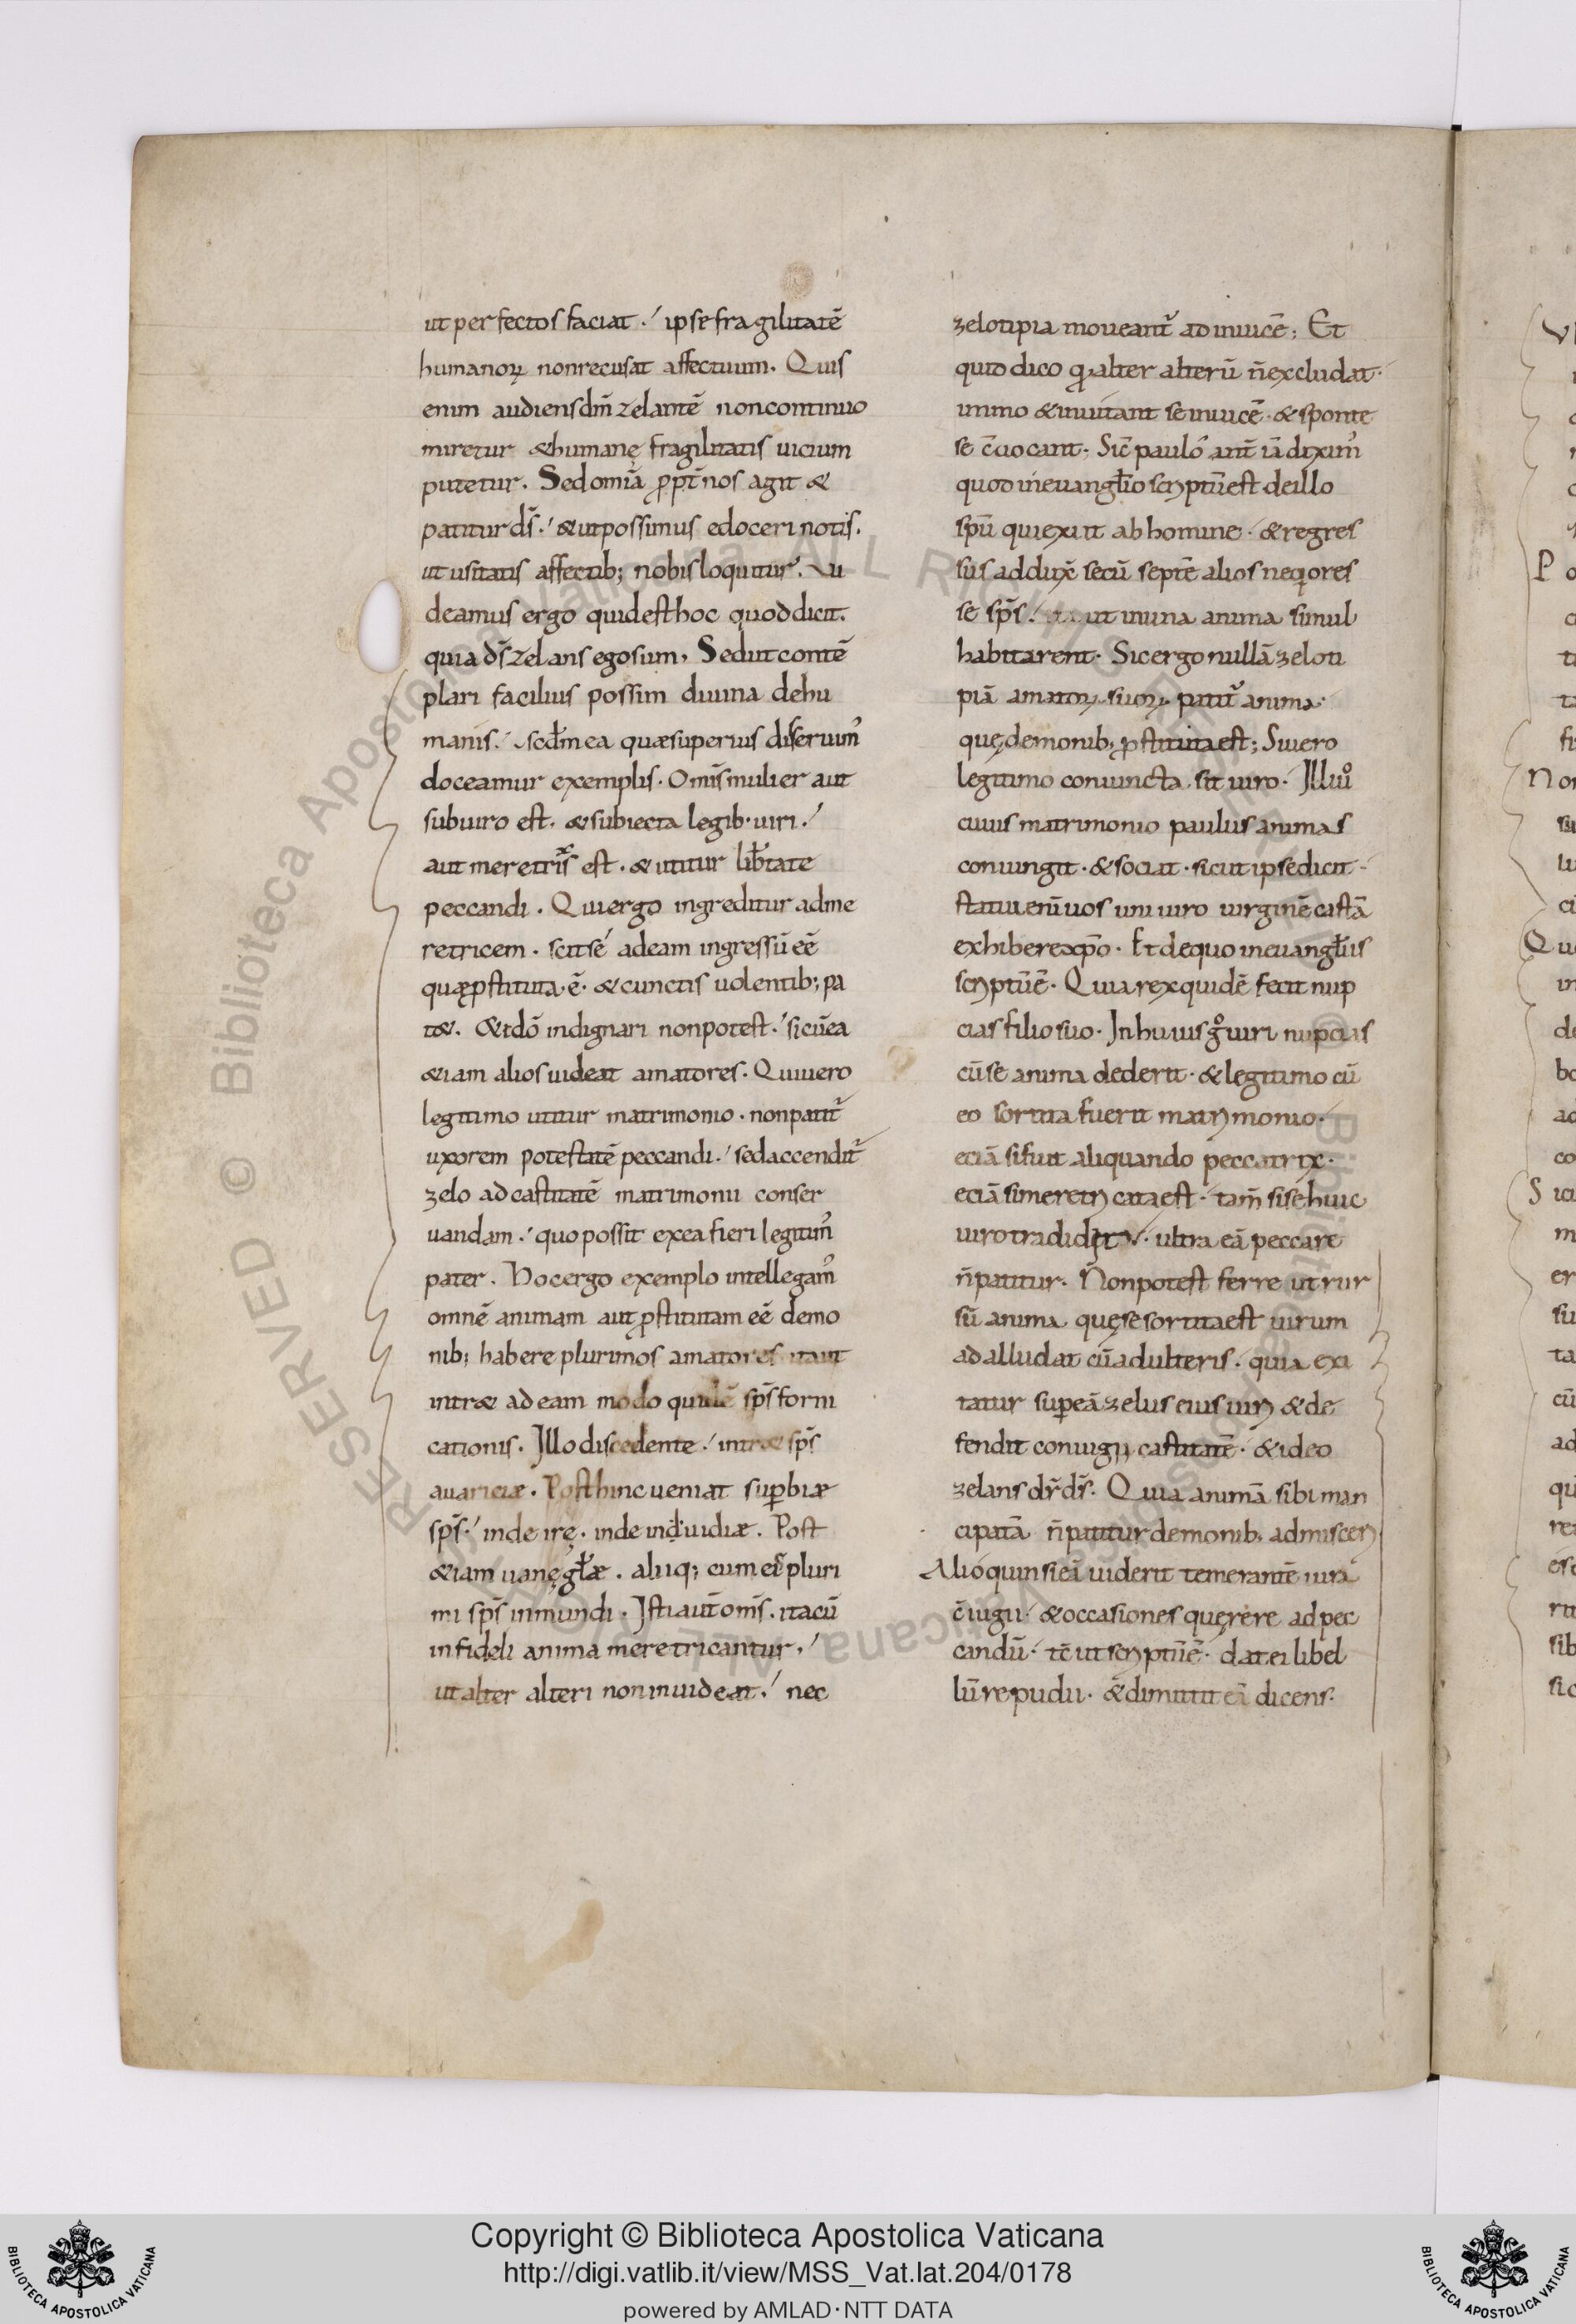 ut perfectos faciat. ipse fragilitatē
humanoꝝ non recusat affectuum. Quis
enim audiens dm̄ zelantē non continuo
miretur & humanę fragilitatis uicium
putetur. Sed omīa ꝓpt̄ nos agit &
patitur ds̄. & ut possimus edoceri notis.
ut usitatis affectib; nobis loquitur. Ui
deamus ergo quid est hoc quod dicit.
quia ds̄ zelans ego sum, Sed ut contē
plari facilius possim diuina de hu
manis. scdm̄ ea quæ superius diseruim᾽
doceamur exemplis. Omīs mulier aut
sub uiro est. & subiecta legib· uiri.
aut meretris̄ est. & utitur lib̄tate
peccandi. Qui ergo ingreditur ad me
retricem. scit sé ad eam ingressū eē
quæ ꝓstituta. ē. & cunctis uolentib; pa
t&. & idō indignari non potest. si cū ea
&iam alios uideat amatores. Qui uero
legitimo utitur matrimonio. non patit̄
uxorem potestatē peccandi. sed accendit̄
zelo ad castitatē matrimonii conser
uandam. quo possit ex ea fieri legitim᾽
pater. Hoc ergo exemplo intellegam᾽
omnē animam aut ꝓstitutam eē demo
nib; habere plurimos amatores ita ut
intr& ad eam modo quidē sp̄s forni
cationis. Illo discedente. intr& sp̄s
auariciæ. Post hinc ueniat suꝑbiæ
sp̄s. inde irę. inde inđuidiæ. Post
&iam uanę gł̄æ. aliiq; cum eis pluri
mi sp̄s inmundi. Isti aut̄ om̄s. ita cū
infideli anima meretricantur,
ut alter alteri non inuideat. nec
zelotipia moueant̄ ad inuicē; Et
quid dico qđ alter alterū n̄ excludat.
immo & inuitant se inuicē. & sponte
se c̄uocant. Sic̄ pauló ant̄ iā dixim᾽
quod in euangł̄io scriptū est de illo
sp̄u qui exiit ab homine. & regres
sus addux̄ secū septē alios neqiores
se sp̄s. ut in una anima simul
habitarent. Sic ergo nullā zeloti
piā amatoꝝ suoꝝ patit̄ anima.
quę demonib; ꝓstituta est; Si uero
legitimo coniuncta. sit uiro. Illi uͦ
cuius matrimonio paulus animas
coniungit. & sociat. sicut ipse dicit
statui enī uos uni uiro uirginē castā
exhibere xp̄o. Et de quo in euangł̄iis
scriptū ē. Quia rex quidē fecit nup
cias filio suo. In huius gͦ uiri nupcias
cū se anima dederit. & legitimo cū
eo sortita fuerit matrimonio.
eciā si fuit aliquando peccatrix.
eciā si meretricata est. tam̄ si sé huic
uiro tradiderit. ultra eā peccare
n̄ patitur. Non potest ferre ut rur
sū anima quę se sortita est uirum
adalludat cū adulteris. quia exci
tatur suꝑ eā zelus eius uiri & de
fendit coniugii castitatē. & ideo
zelans dr̄ ds̄. Quia animā sibi man
cipatā n̄ patitur demonib; admisceri
Alióquin si eā uiderit temerantē iura
c̄iugii. & occasiones quęrere ad pec
candū. tc̄ ut scriptū ē. dat ei libel
lū repudii. & dimittit eā dicens.
Copyright © Biblioteca Apostolica Vaticana
http://digi.vatlib.it/view/MSS_Vat.lat.204/0178
powered by AMLAD·NTT DATA